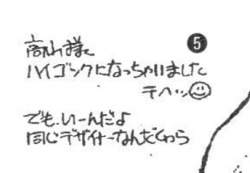 高山様に
❺
ハイゴックになっちゃいました
テヘッ
でも、いーんだよ
同じデザイナーなんだから